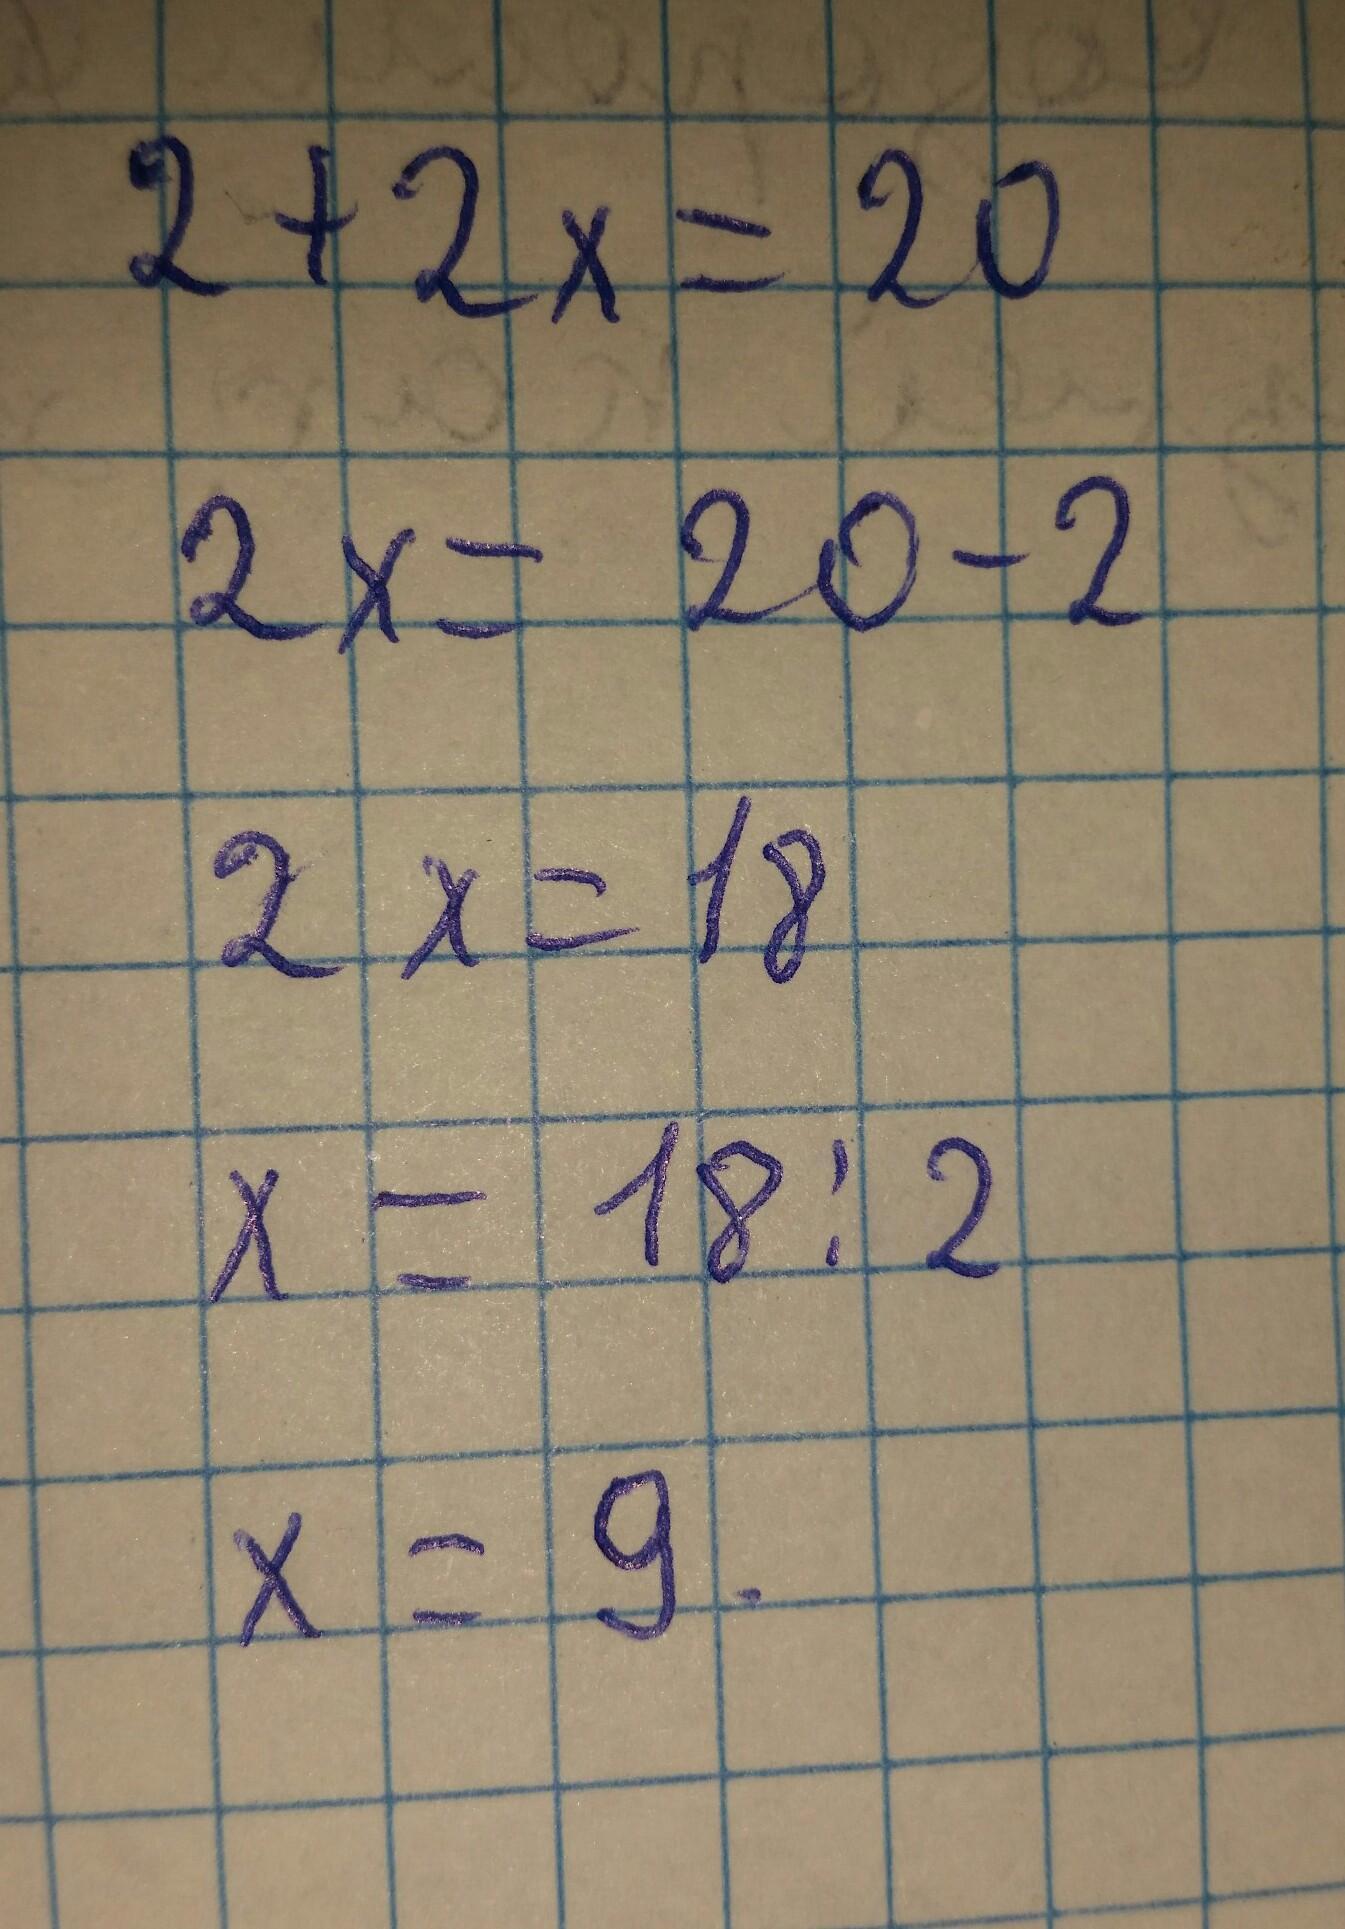 2+2x=20
2x=20-2
2x=18
x=18:2
x=9.